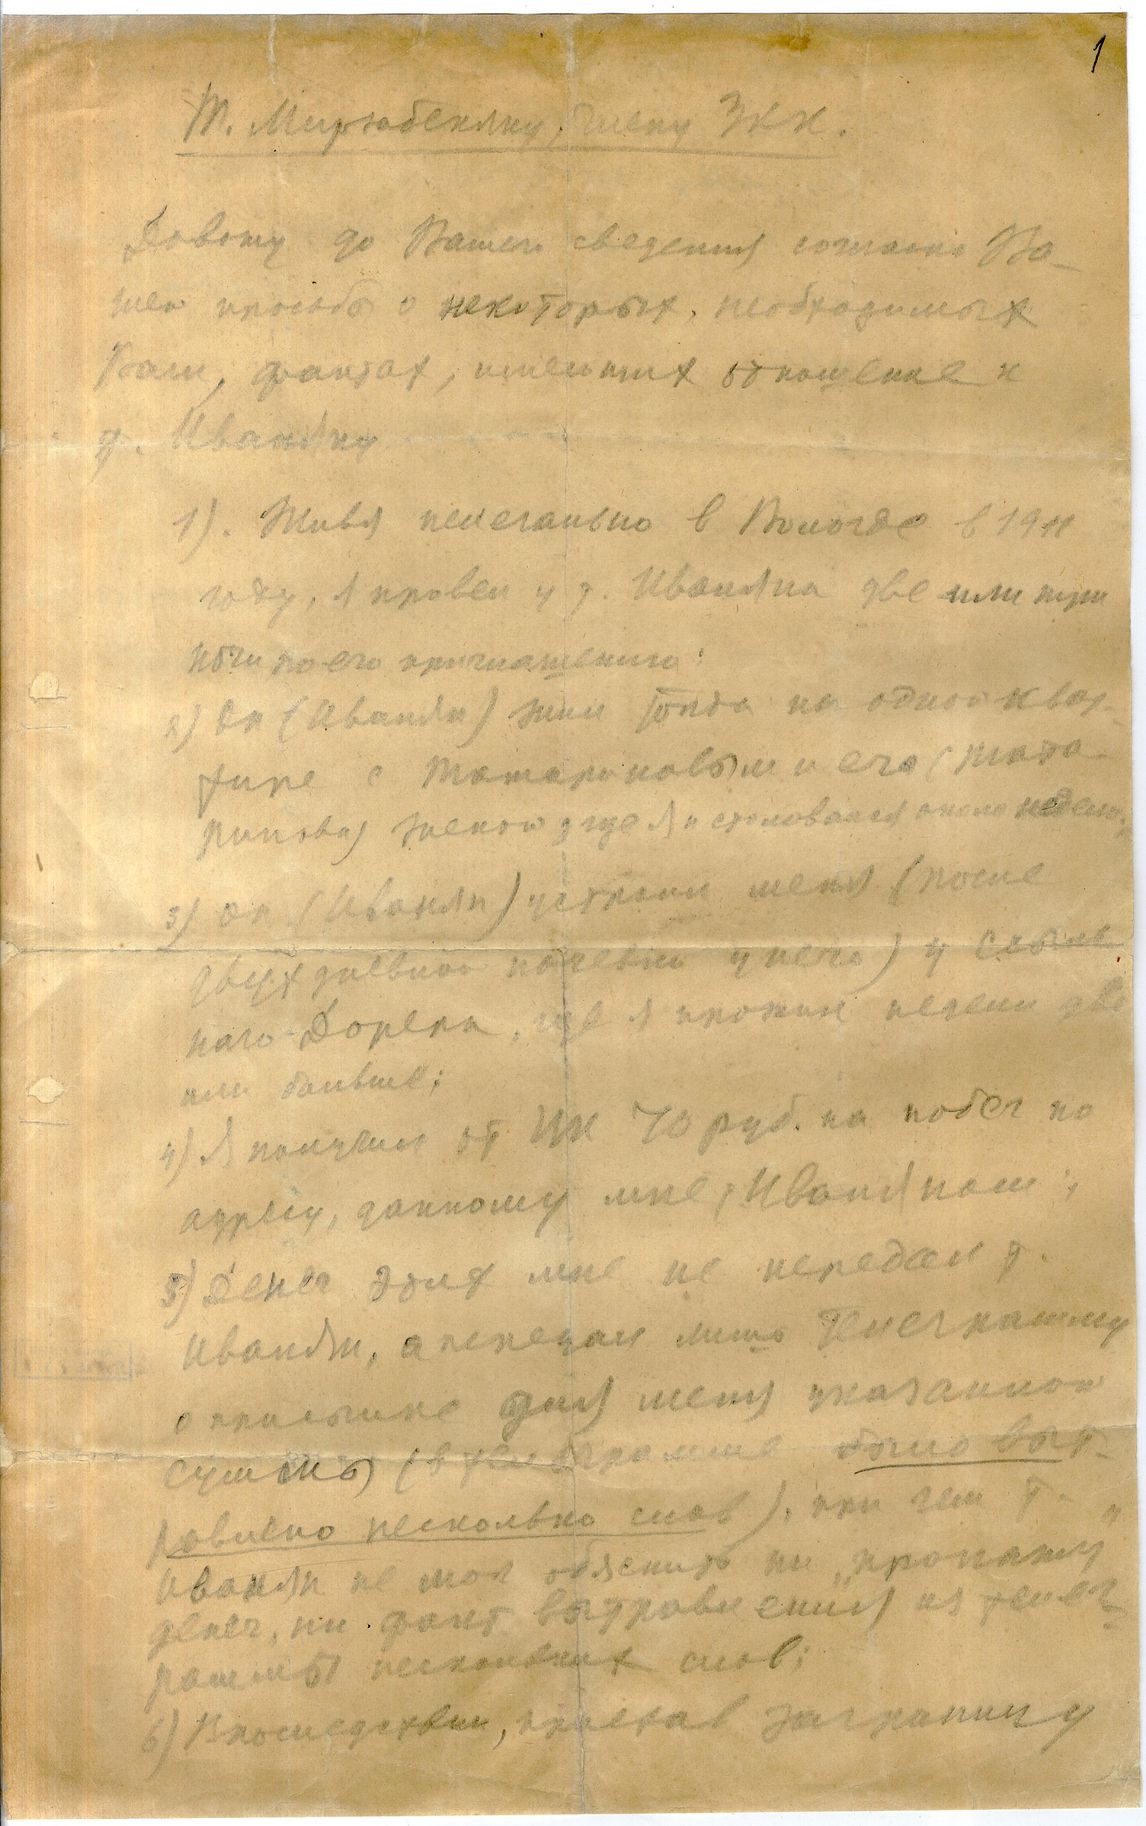 1
Т. Мирзабекяну, члену ЗКК.
Довожу до Вашего сведения согласно Ва-
шей просьбы о некоторых, необходимых
Вам, фактах, имеющих отношение к
т. Иваняну
1). Живя нелегально в Вологде в 1911
году, я провел у т. Иваняна две или три
ночи по его приглашению:
2) Он (Иванян) жил тогда на одной квар-
тире с Татариновым и его (Тата-
ринова) женой, где я и столовался около недели;
3) Он (Иванян) устроил меня (после
двухдневной ночевки у него) у ссыль-
наго, где я прожил недели две
или больше;
4) Я получил от ЦК 70 руб. на побег по
адресу, данному мне, Иваняном;
5) Денег этих мне не передал т.
Иванян, а передал лишь телеграмму
о присылке для меня указанной
суммы (в телеграмме было выт-
равлено несколько слов), при чем т.
Иванян не мог объяснить ни "пропажу"
денег, ни факт вытравления из телег-
раммы нескольких слов;
6) Впоследствии, приехав заграницу